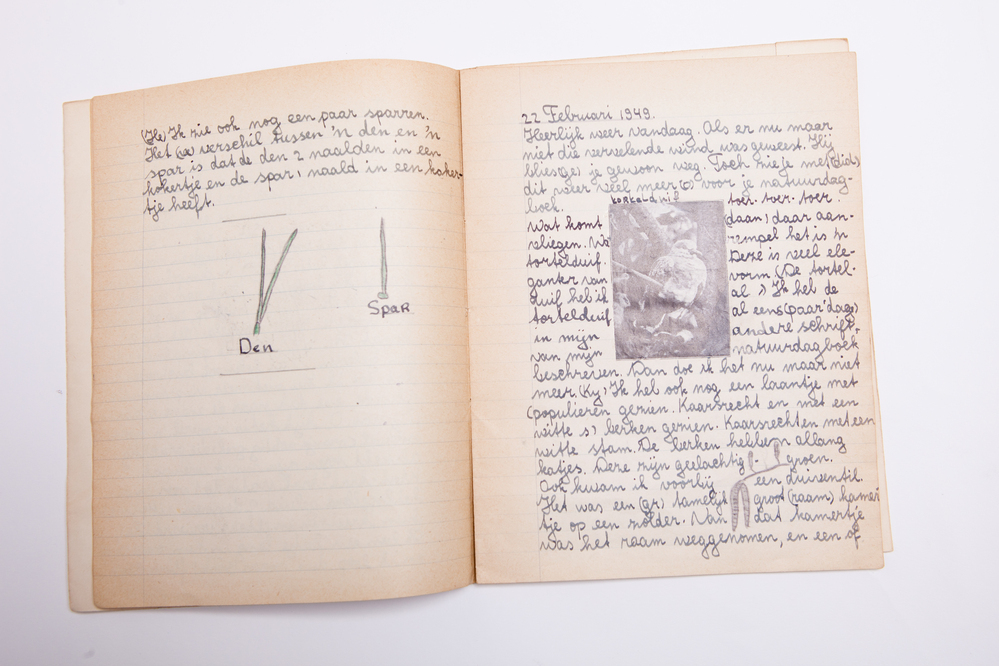 (He) Ik zie ook nog een paar sparren.
Het verschil tussen 'n den en 'n
spar is dat de den 2 naalden in een
kokertje en de spar 1 naald in een koker-
tje heeft.
Den
Spar
22 Februari 1949.
Heerlijk weer vandaag. Als er nu maar
niet die vervelende wind was geweest. Hij
blies(ge) je gewoon weg. Toch zie je met
dit weer veel meer(o) voor je natuurdag-
boek. toer. toer. toer.
Wat komt (daan) daar aan-
vliegen. het is 'n
tortelduif. Deze is veel ele-
ganter van vorm (De tortel-
duif heb ik al ) Ik heb de
tortelduif al eens(paar dag)
in mijn andere schrift,
van mijn natuurdagboek
beschreven. Dan doe ik het nu maar niet
meer. Ik heb ook nog een laantje met
(populieren gezien. Kaarsrecht en met een
witte s) berken gezien. Kaarsrecht en met een
witte stam. De berken hebben allang
katjes. Deze zijn geelachtig - groen.
Ook kwam ik voorbij een duiventil.
Het was een (gr) tamelijk groot (raam) kamer
tje op een zolder. Van dat kamertje
was het raam weggenomen, en een of